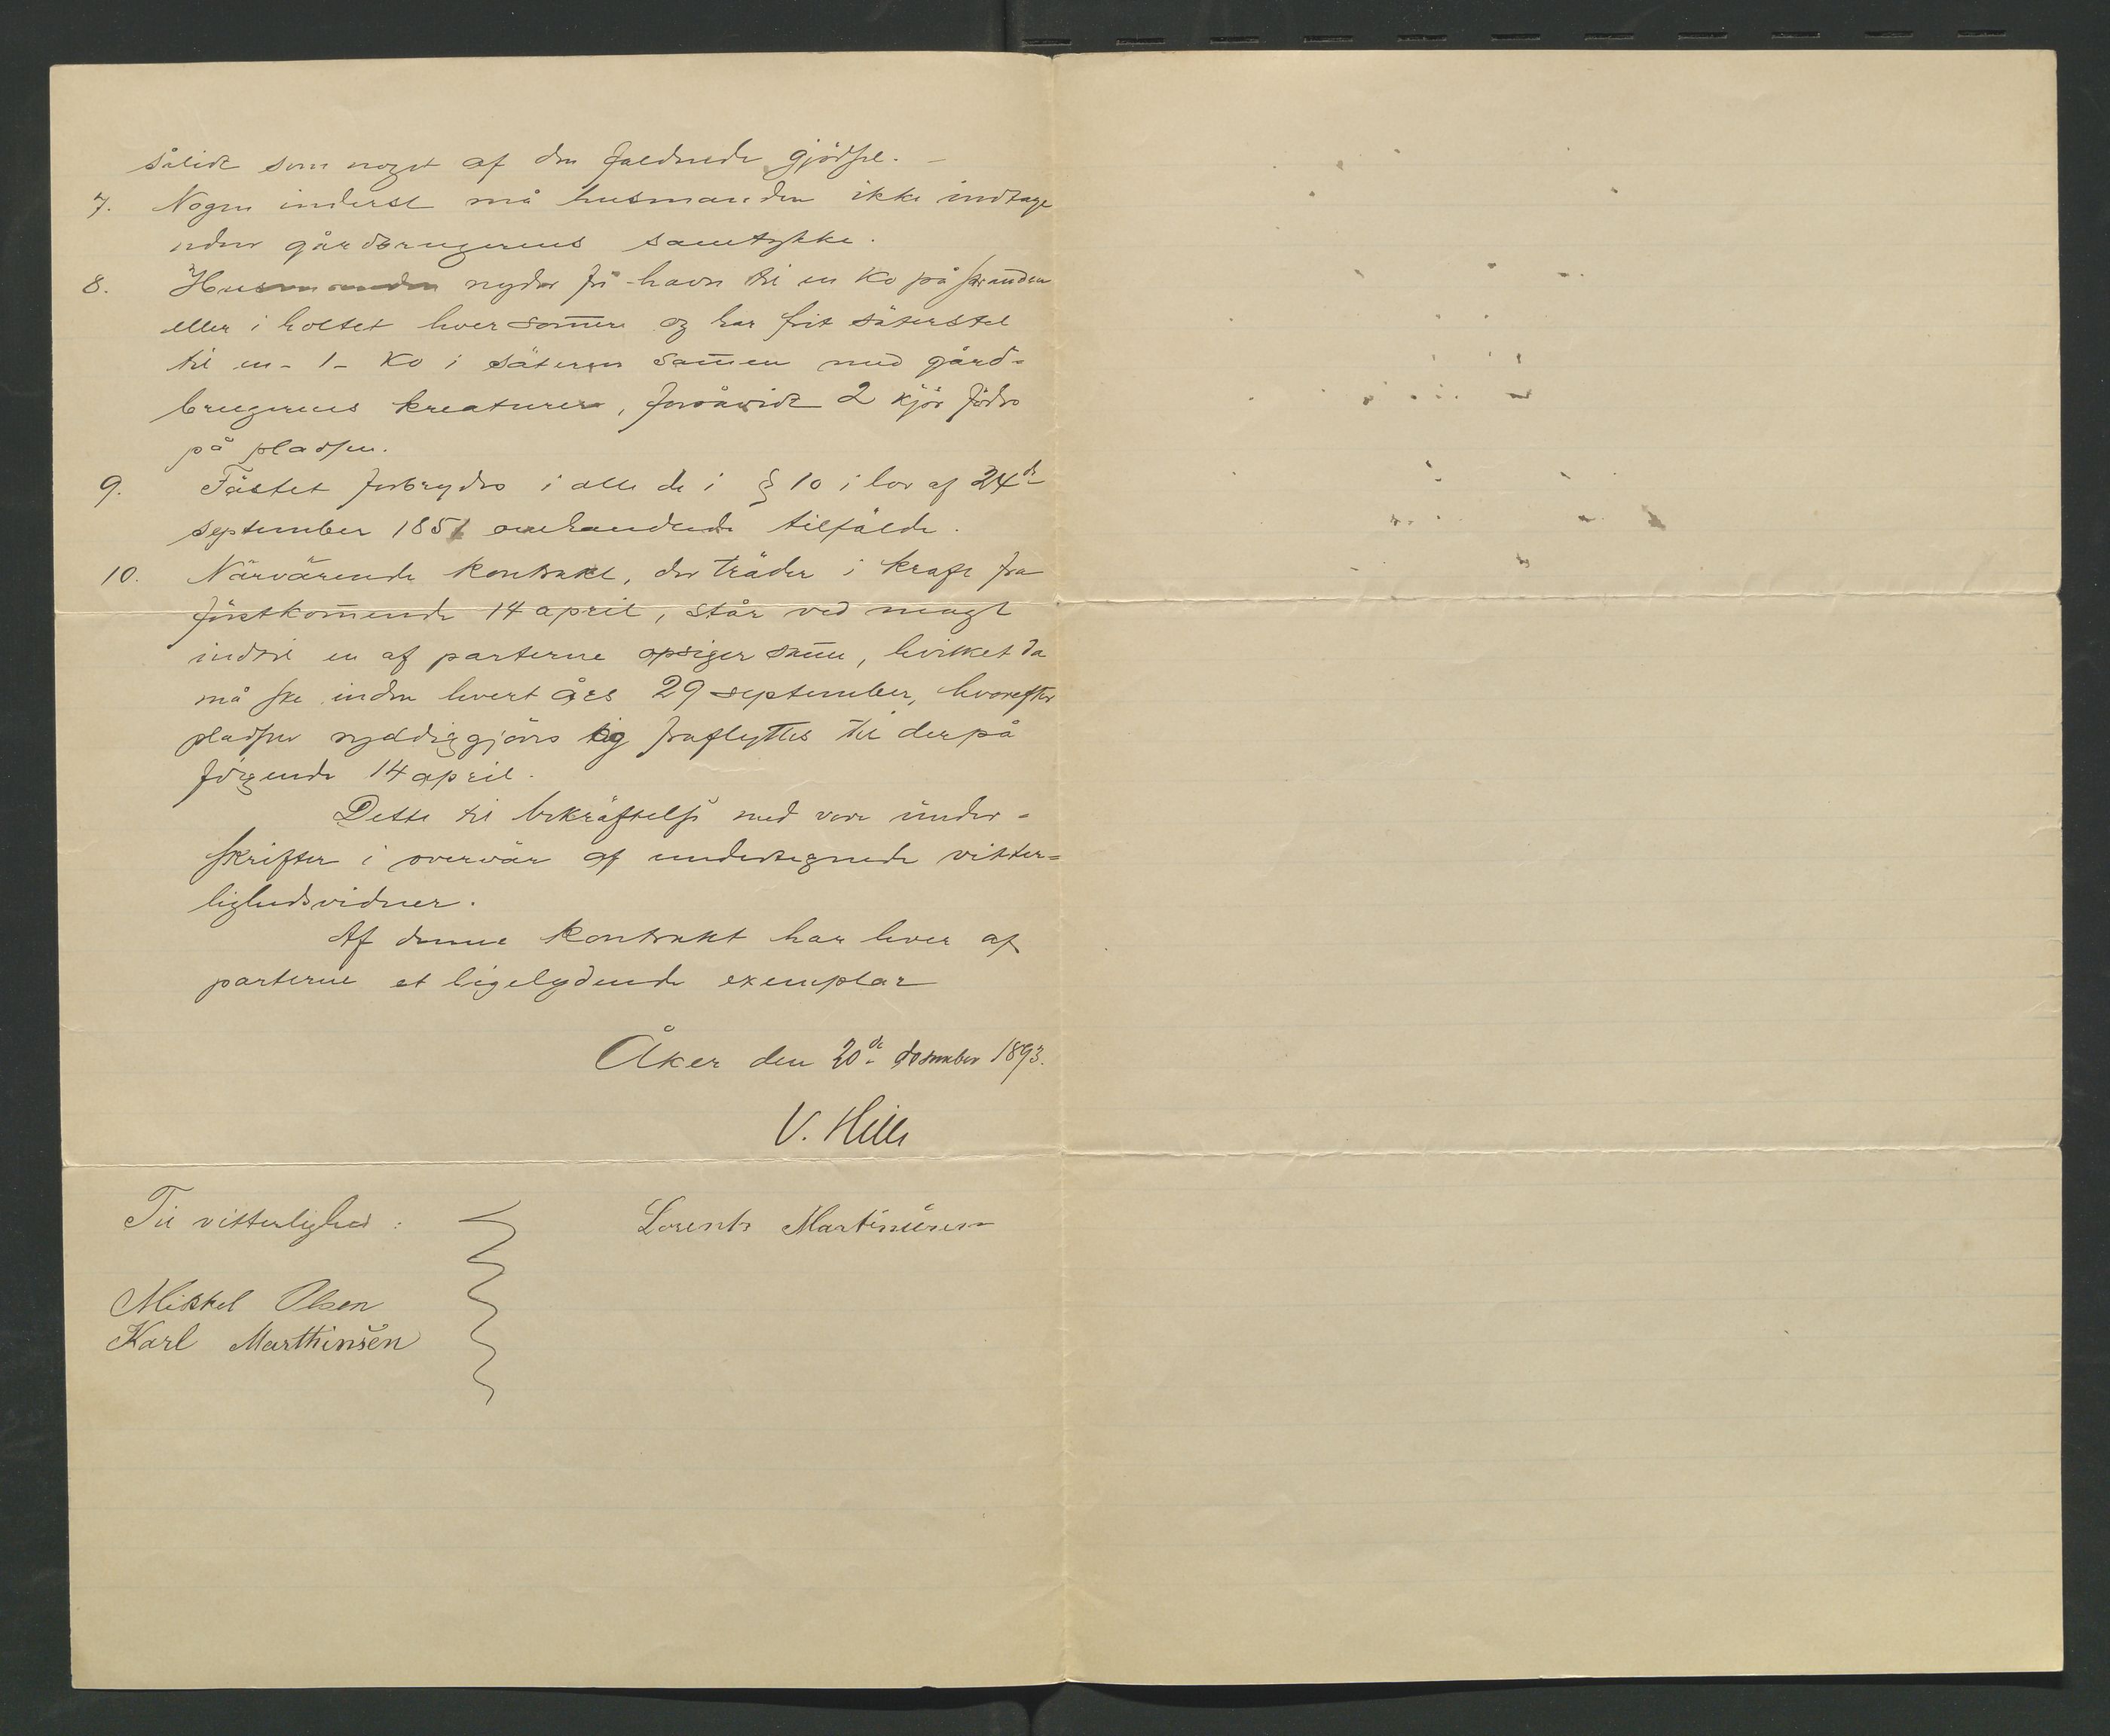 sålidt som noget af den faldende gjödsel. –
7. Nogen inderst må husmanden ikke indtage
uden gårdbrugerens samtykke.
8. Husmanden nyder fri havn til en ko på stranden
eller i holtet hver som̄er og har frit säterstel
til en - 1 - ko i säteren sam̄en med gård-
brugerens kreaturer, forsåvidt 2 kjör födes
på pladsen.
9. Fästet forbrydes i alle de i § 10 i lov af 24de
september 1851 omhandlede tilfälde.
10. Närvärende kontrakt, der träder i kraft fra
förstkom̄ende 14 april, står ved magt
indtil en af parterne opsiger sam̄e, hvilket da
må ske inden hvert års 29 september, hvorefter
pladsen ryddiggjöres og fraflyttes til derpå
fölgende 14 april.
Dette til bekräftelse med vore under-
skrifter i overvär af undertegnede vitter-
lighedsvidner.
Af denne kontrakt har hver af
parterne et ligelydende exemplar
Åker den 20de desember 1893.
V. Hille
Til vitterlighed:
Lorents Martinusen
Mikkel Olsen
Karl Marthinsen